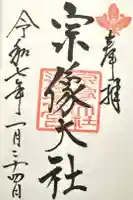 奉拝
宗像大社
令和七年一月二十四日